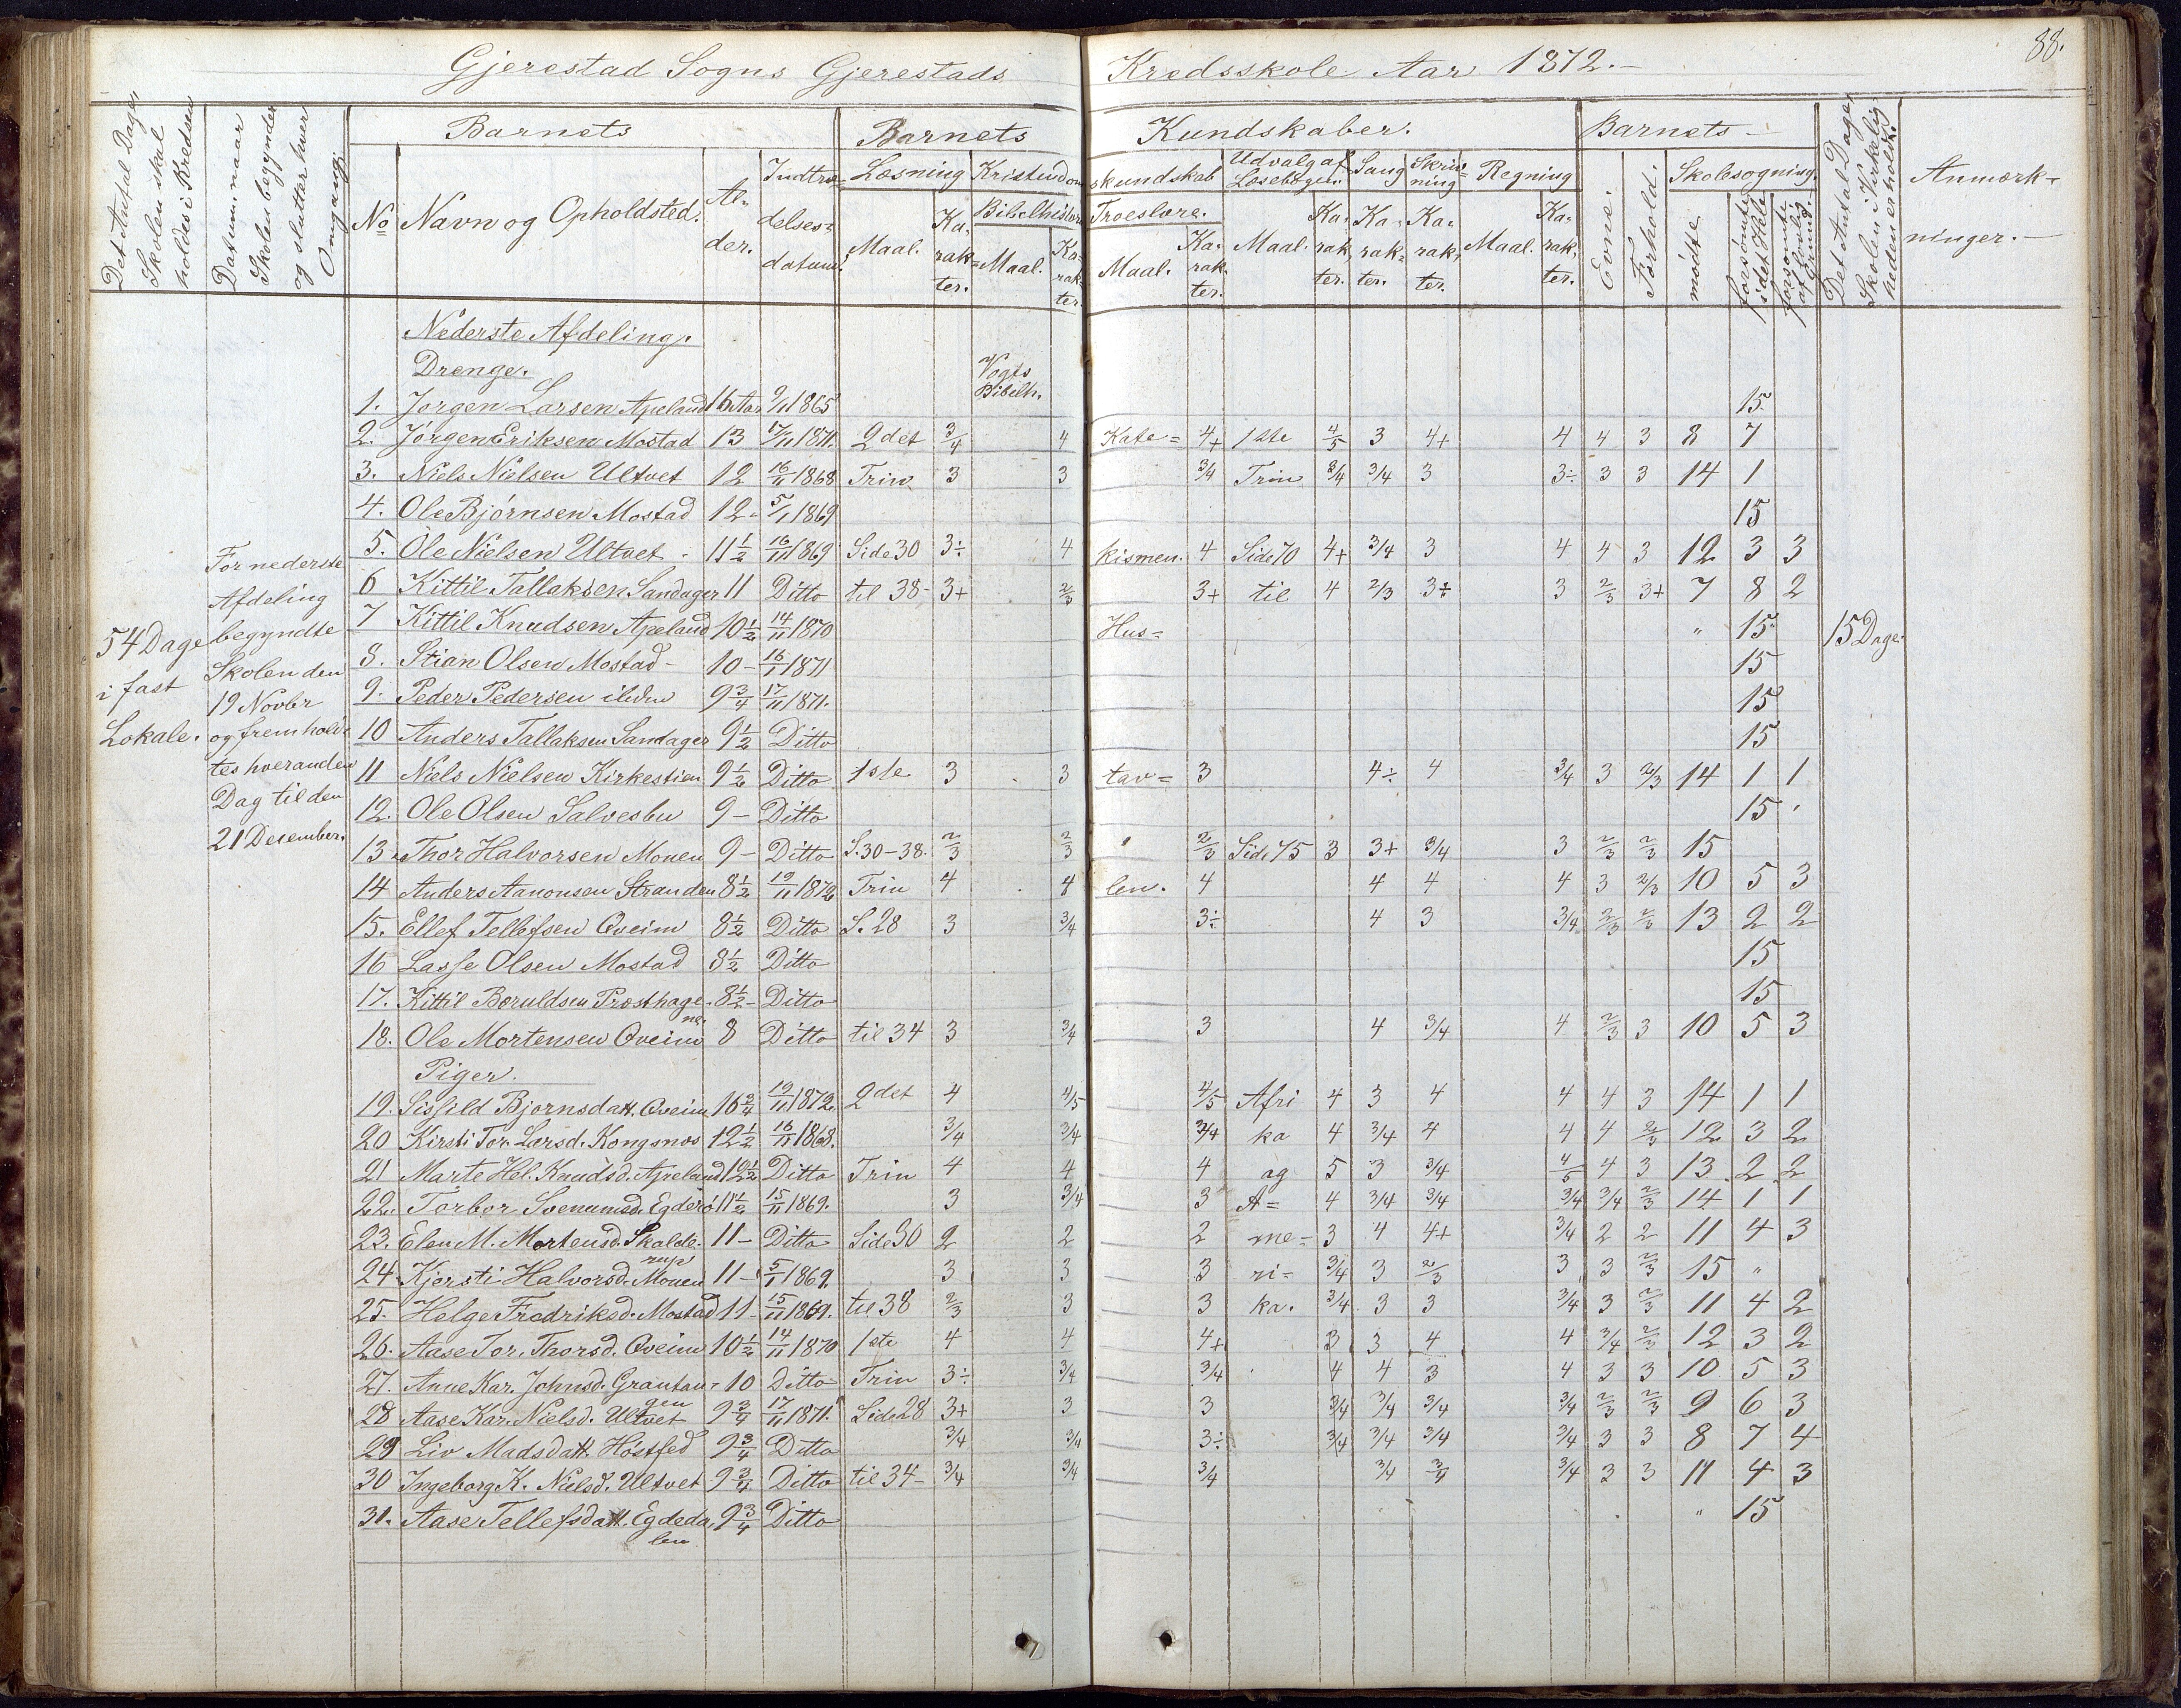 88.
Gjerestad Sogns Gjerestads Kredsskole Aar 1872.-
Det Antal Dage, Skolen skal holdes i Kredsen
Datum, naar Skolen begynder og slutter hver Omgang.
Barnets
No Navn og Opholdsted. Al- der. Indtræ- delses- datum.
Barnets Kundskaber.
Læsning Kristendomskundskab Udvalg af Læsebogen. Sang Skriv- ning Regning
Bibelhistorie Troeslære.
Maal. Ka- rak- ter. Maal. Ka- rak- ter. Maal. Ka- rak- ter. Maal. Ka- rak- ter. Ka- rak- ter. Ka- rak- ter. Maal. Ka- rak- ter.
Barnets-
Evne. Forhold. Skolesøgning
mødte forsømte i det Hele forsømte af lovlig Grund.
Det Antal Dage, Skolen i Virkelig heden er holdt.
Anmærk- ninger.-
54 Dage
i fast
Lokale.
For nederste
Afdeling
begyndte
Skolen den
19 Novbr
og fremhold-
tes hveranden
Dag til den
21 Desember.
Nederste Afdeling.
Drenge.
Vogts
Bibelh.
1. Jørgen Larsen Apeland 16 Aar 9/11 1865 15
2. Jørgen Eriksen Mostad 13 17/11 1871. 2det 3/4 4 Kate= 4+ 1ste 4/5 3 4+ 4 4 3 8 7
3. Niels Nielsen Ultvet 12 16/11 1868 Trin 3 3 3/4 Trin 3/4 3/4 3 3÷ 3 3 14 1
4. Ole Bjørnsen Mostad 12- 5/1 1869 15
5. Ole Nielsen Ultvet - 11 1/2 16/11 1869 Side 30 3÷ 4 kismen. 4 Side 70 4+ 3/4 3 4 4 3 12 3 3
6 Kittil Tallaksen Sandager 11 Ditto til 38- 3+ 2/3 3+ til 4 2/3 3÷ 3 2/3 3+ 7 8 2
7 Kittil Knudsen Apeland 10 1/2 14/11 1870 Hus= " 15 15 Dage.
8. Stian Olsen Mostad- 10- 16/1 1871 15
9. Peder Pedersen ibidm 9 3/4 17/11 1871. 15
10 Anders Tallaksen Sandager 9 1/2 Ditto 15
11 Niels Nielsen Kirkestien 9 1/2 Ditto 1ste 3 3 tav= 3 4÷ 4 3/4 3 2/3 14 1 1
12. Ole Olsen Salvesbu 9- Ditto 15
13. Thor Halvorsen Monen 9- Ditto S. 30-38. 2/3 2/3 2/3 Side 75 3 3+ 3/4 3 2/3 2/3 15
14 Anders Aanonsen Stranden 8 1/2 19/11 1872 Trin 4 4 len. 4 4 4 4 3 2/3 10 5 3
15. Ellef Tellefsen Qveim 8 1/2 Ditto S. 28 3 3/4 3÷ 4 3 3/4 2/3 2/3 13 2 2
16 Lasse Olsen Mostad 8 1/2 Ditto 15
17. Kittil Boruldsen Præsthage- ne. 8 1/2- Ditto 15
18. Ole Mortensen Qveim 8 Ditto til 34 3 3/4 3 4 3/4 4 2/3 3 10 5 3
Piger.
19. Sissild Bjørnsdatt. Qveim 16 3/4 19/11 1872. 2det 4 4/5 4/5 Afri 4 3 4 4 4 3 14 1 1
20 Kirsti Tor. Larsd. Kongsnøs 12 1/2 16/11 1868. 3/4 3/4 3/4 ka 4 3/4 4 4 4 2/3 12 3 2
21 Marte Hel. Knudsd. Apeland 12 1/2 Ditto Trin 4 4 4 og 5 3 3/4 4/5 4 3 13 2 2
22. Torbor Svenumsd. Egderø 11 1/2 15/11 1869. 3 3/4 3 A= 4 3/4 3/4 3/4 3/4 2/3 14 1 1
23. Elen M. Mortensd. Skolde- rup 11- Ditto Side 30 2 2 2 me= 3 4 4+ 3/4 2 2 11 4 3
24 Kjersti Halvorsd. Monen 11- 5/1 1869. 3 3 3 ri= 3/4 3 2/3 3 3 2/3 15 "
25. Helge Fredriksd. Mostad 11- 15/11 1869. til 38 2/3 3 3 ka. 3/4 3 3 3/4 3 2/3 11 4 2
26. Aase Tor. Thorsd. Qveim 10 1/2 14/11 1870 1ste 4 4 4+ 3 3 4 4 3/4 2/3 12 3 2
27. Anne Kar. Johnsd. Grautau- gen 10 Ditto Trin 3÷ 3/4 3/4 4 4 3 4 3 3 10 5 3
28 Aase Kar. Nielsd. Ultvet 9 3/4 17/11 1871. Side 28 3+ 3 3 3/4 3/4 3/4 3/4 2/3 2/3 9 6 3
29 Liv Madsdatt. Høstfed 9 3/4 Ditto 3/4 3/4 3÷ 3/4 3/4 3/4 3/4 3 3 8 7 4
30 Ingeborg K. Nielsd. Ultvet 9 3/4 Ditto til 34- 3/4 3/4 3/4 3/4 3/4 3/4 3 3 11 4 3
31. Aase Tellefsdatt. Egdeda- len 9 3/4 Ditto " 15